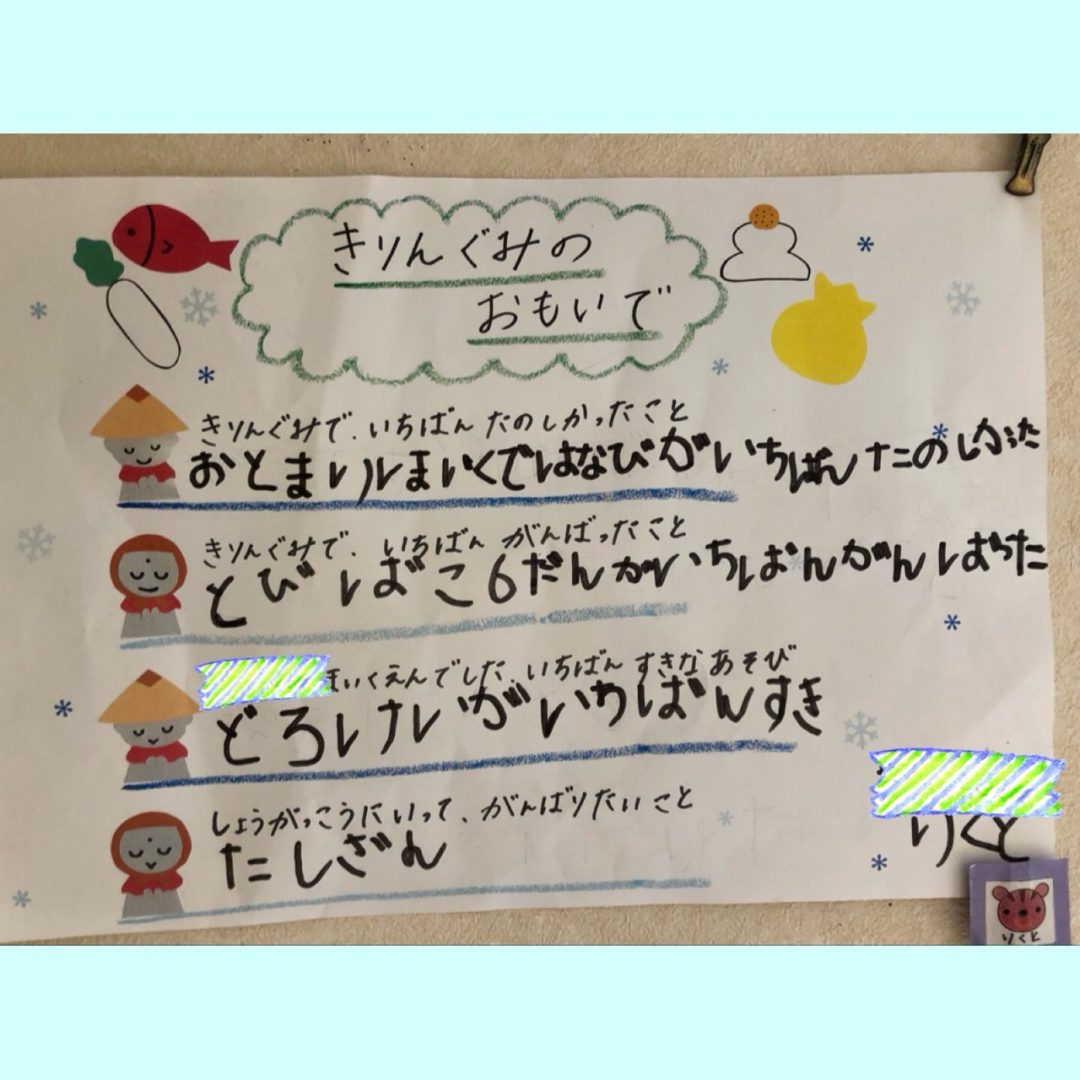 きりんぐみの
おもいで
きりんぐみで、いちばん たのしかったこと
おとまりほいくではなびがいちばんたのしかった
きりんぐみで、いちばん がんばったこと
とびばこ6だんがいちばんがんばった
ほいくえんでした、いちばん すきな あそび
どろけいがいちばんすき
しょうがっこうにいって、がんばりたいこと
たしざん
りくと
りくと